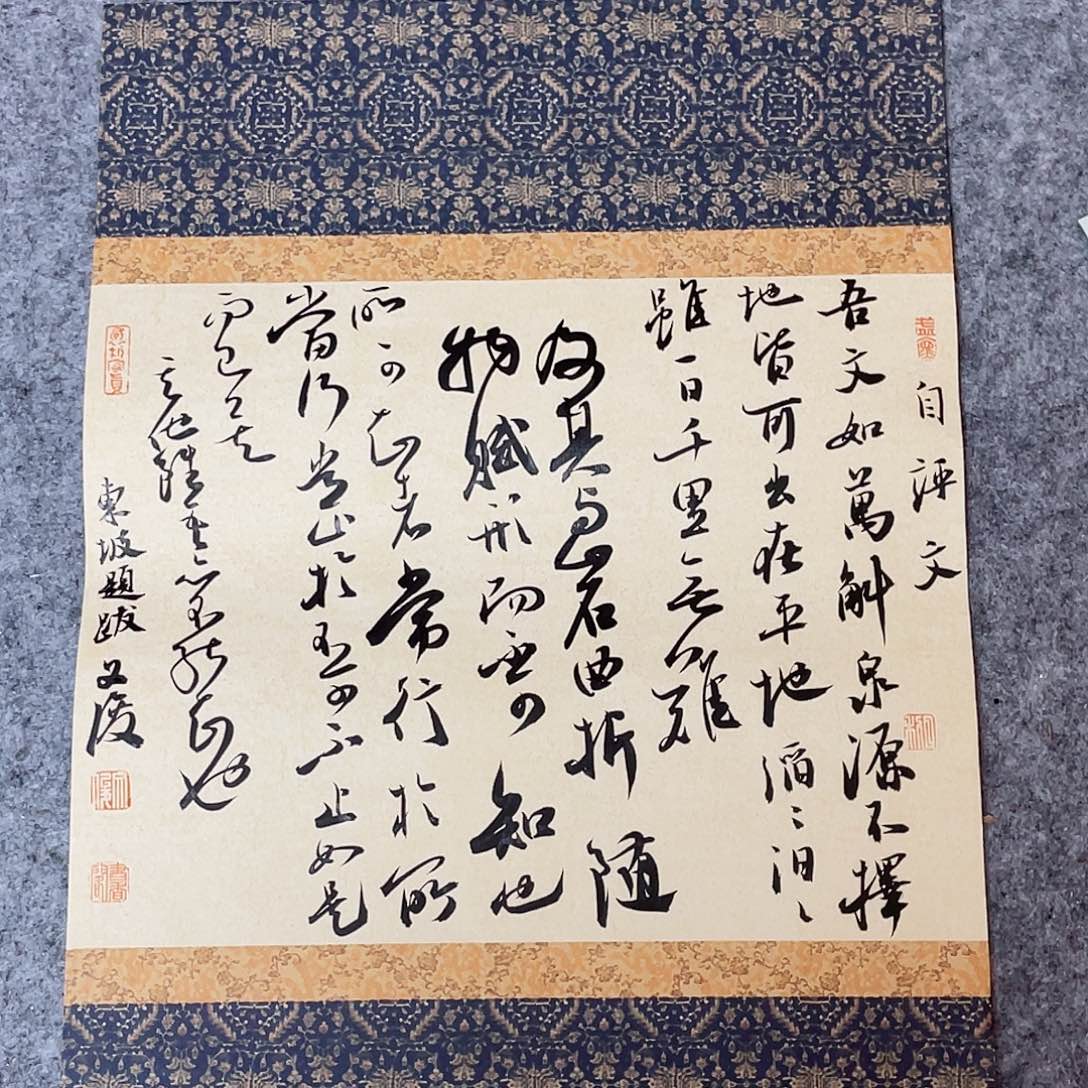 自評文
吾文如萬斛泉源不擇
地皆可出在平地滔〻汩〻
雖一日千里無難
及其與山石曲折隨
物賦形而可知也
所可知者常行於所
當行常止於不可不止如是
而已矣
其他雖吾亦不能知也
東坡題跋